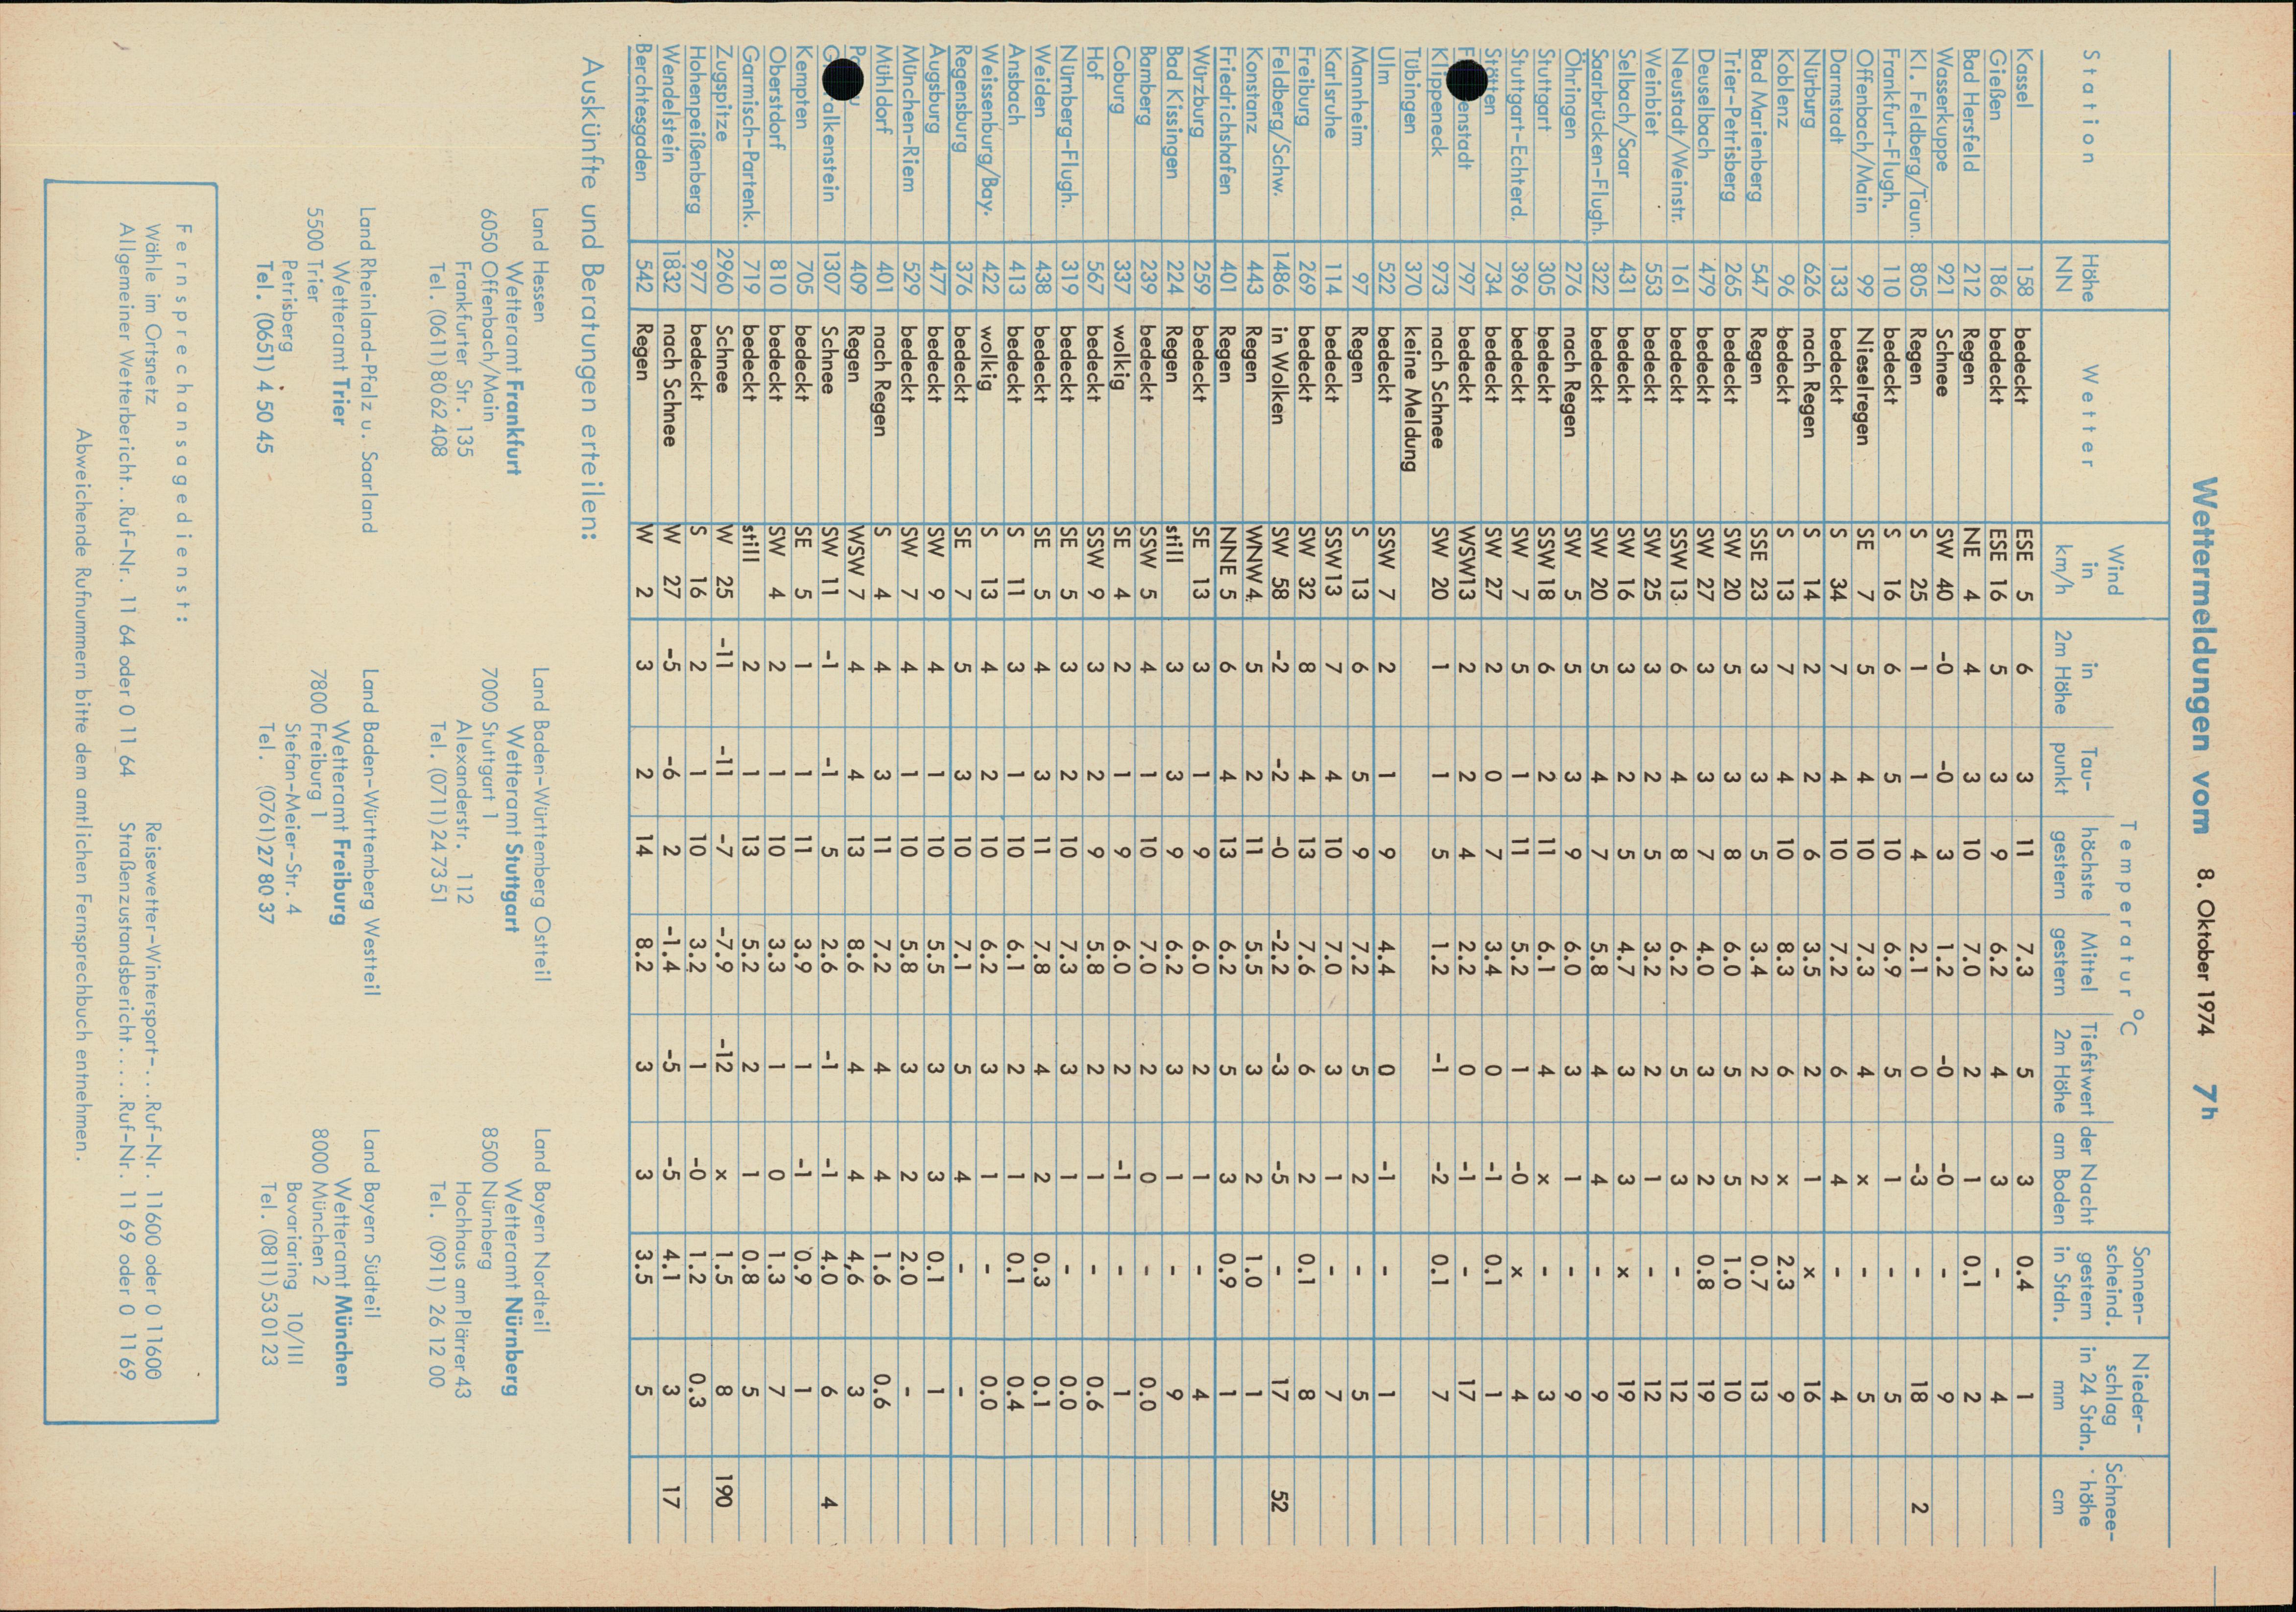 Wettermeldungen vom 8. Oktober 1974 7h
Station Höhe NN Wetter Wind in km/h Temperatur °C in 2m Höhe Tau-punkt höchste gestern Mittel gestern Tiefstwert der Nacht 2m Höhe am Boden Sonnen-scheind. gestern in Stdn. Nieder-schlag in 24 Stdn. mm Schnee-höhe cm
Kassel 158 bedeckt ESE 5 6 3 11 7.3 5 3 0.4 1
Gießen 186 bedeckt ESE 16 5 3 9 6.2 4 3 - 4
Bad Hersfeld 212 Regen NE 4 4 3 10 7.0 2 1 0.1 2
Wasserkuppe 921 Schnee SW 40 -0 -0 3 1.2 -0 -0 - 9
Kl. Feldberg/Taun. 805 Regen S 25 1 1 4 2.1 0 -3 - 18 2
Frankfurt-Flugh. 110 bedeckt S 16 6 5 10 6.9 5 1 - 5
Offenbach/Main 99 Nieselregen SE 7 5 4 10 7.3 4 x - 5
Darmstadt 133 bedeckt S 34 7 4 10 7.2 6 4 - 4
Nürburg 626 nach Regen S 14 2 2 6 3.5 2 1 x 16
Koblenz 96 bedeckt S 13 7 4 10 8.3 6 x 2.3 9
Bad Marienberg 547 Regen SSE 23 3 3 5 3.4 2 2 0.7 13
Trier-Petrisberg 265 bedeckt SW 20 5 3 8 6.0 5 5 1.0 10
Deuselbach 479 bedeckt SW 27 3 3 7 4.0 3 2 0.8 19
Neustadt/Weinstr. 161 bedeckt SSW 13 6 4 8 6.2 5 3 - 12
Weinbiet 553 bedeckt SW 25 3 2 5 3.2 2 1 - 12
Selbach/Saar 431 bedeckt SW 16 3 2 5 4.7 3 3 x 19
Saarbrücken-Flugh. 322 bedeckt SW 20 5 4 7 5.8 4 4 - 9
Öhringen 276 nach Regen SW 5 5 3 9 6.0 3 1 - 9
Stuttgart 305 bedeckt SSW 18 6 2 11 6.1 4 x - 3
Stuttgart-Echterd. 396 bedeckt SW 7 5 1 11 5.2 1 -0 x 4
Stötten 734 bedeckt SW 27 2 0 7 3.4 0 -1 0.1 1
F enstadt 797 bedeckt WSW 13 2 2 4 2.2 0 -1 - 17
Klippeneck 973 nach Schnee SW 20 1 1 5 1.2 -1 -2 0.1 7
Tübingen 370 keine Meldung
Ulm 522 bedeckt SSW 7 2 1 9 4.4 0 -1 - 1
Mannheim 97 Regen S 13 6 5 9 7.2 5 2 - 5
Karlsruhe 114 bedeckt SSW 13 7 4 10 7.0 3 1 - 7
Freiburg 269 bedeckt SW 32 8 4 13 7.6 6 2 0.1 8
Feldberg/Schw. 1486 in Wolken SW 58 -2 -2 -0 -2.2 -3 -5 - 17 52
Konstanz 443 Regen WNW 4 5 2 11 5.5 3 2 1.0 1
Friedrichshafen 401 Regen NNE 5 6 4 13 6.2 5 3 0.9 1
Würzburg 259 bedeckt SE 13 3 1 9 6.0 2 1 - 4
Bad Kissingen 224 Regen still 3 3 9 6.2 3 1 - 9
Bamberg 239 bedeckt SSW 5 4 1 10 7.0 2 0 - 0.0
Coburg 337 wolkig SE 4 2 1 9 6.0 2 -1 - 1
Hof 567 bedeckt SSW 9 3 2 9 5.8 2 1 - 0.6
Nürnberg-Flugh. 319 bedeckt SE 5 3 2 10 7.3 3 1 - 0.0
Weiden 438 bedeckt SE 5 4 3 11 7.8 4 2 0.3 0.1
Ansbach 413 bedeckt S 11 3 1 10 6.1 2 1 0.1 0.4
Weissenburg/Bay. 422 wolkig S 13 4 2 10 6.2 3 1 - 0.0
Regensburg 376 bedeckt SE 7 5 3 10 7.1 5 4 - -
Augsburg 477 bedeckt SW 9 4 1 10 5.5 3 3 0.1 1
München-Riem 529 bedeckt SW 7 4 1 10 5.8 3 2 2.0 -
Mühldorf 401 nach Regen S 4 4 3 11 7.2 4 4 1.6 0.6
Pa u 409 Regen WSW 7 4 4 13 8.6 4 4 4,6 3
G alkenstein 1307 Schnee SW 11 -1 -1 5 2.6 -1 -1 4.0 6 4
Kempten 705 bedeckt SE 5 1 1 11 3.9 1 -1 0.9 1
Oberstdorf 810 bedeckt SW 4 2 1 10 3.3 1 0 1.3 7
Garmisch-Partenk. 719 bedeckt still 2 1 13 5.2 2 1 0.8 5
Zugspitze 2960 Schnee W 25 -11 -11 -7 -7.9 -12 x 1.5 8 190
Hohenpeißenberg 977 bedeckt S 16 2 1 10 3.2 1 -0 1.2 0.3
Wendelstein 1832 nach Schnee W 27 -5 -6 2 -1.4 -5 -5 4.1 3 17
Berchtesgaden 542 Regen W 2 3 2 14 8.2 3 3 3.5 5
Auskünfte und Beratungen erteilen:
Land Hessen
Wetteramt Frankfurt
6050 Offenbach/Main
Frankfurter Str. 135
Tel. (0611) 80 62 408
Land Baden-Württemberg Ostteil
Wetteramt Stuttgart
7000 Stuttgart 1
Alexanderstr. 112
Tel. (0711) 24 73 51
Land Bayern Nordteil
Wetteramt Nürnberg
8500 Nürnberg
Hochhaus am Plärrer 43
Tel. (0911) 26 12 00
Land Rheinland-Pfalz u. Saarland
Wetteramt Trier
5500 Trier
Petrisberg
Tel. (0651) 4 50 45
Land Baden-Württemberg Westteil
Wetteramt Freiburg
7800 Freiburg 1
Stefan-Meier-Str. 4
Tel. (0761) 27 80 37
Land Bayern Südteil
Wetteramt München
8000 München 2
Bavariaring 10/III
Tel. (0811) 53 01 23
Fernsprechansagedienst:
Wähle im Ortsnetz Reisewetter-Wintersport-...Ruf-Nr. 11600 oder 0 11600
Allgemeiner Wetterbericht...Ruf-Nr. 11 64 oder 0 11 64 Straßenzustandsbericht.....Ruf-Nr. 11 69 oder 0 11 69
Abweichende Rufnummern bitte dem amtlichen Fernsprechbuch entnehmen.